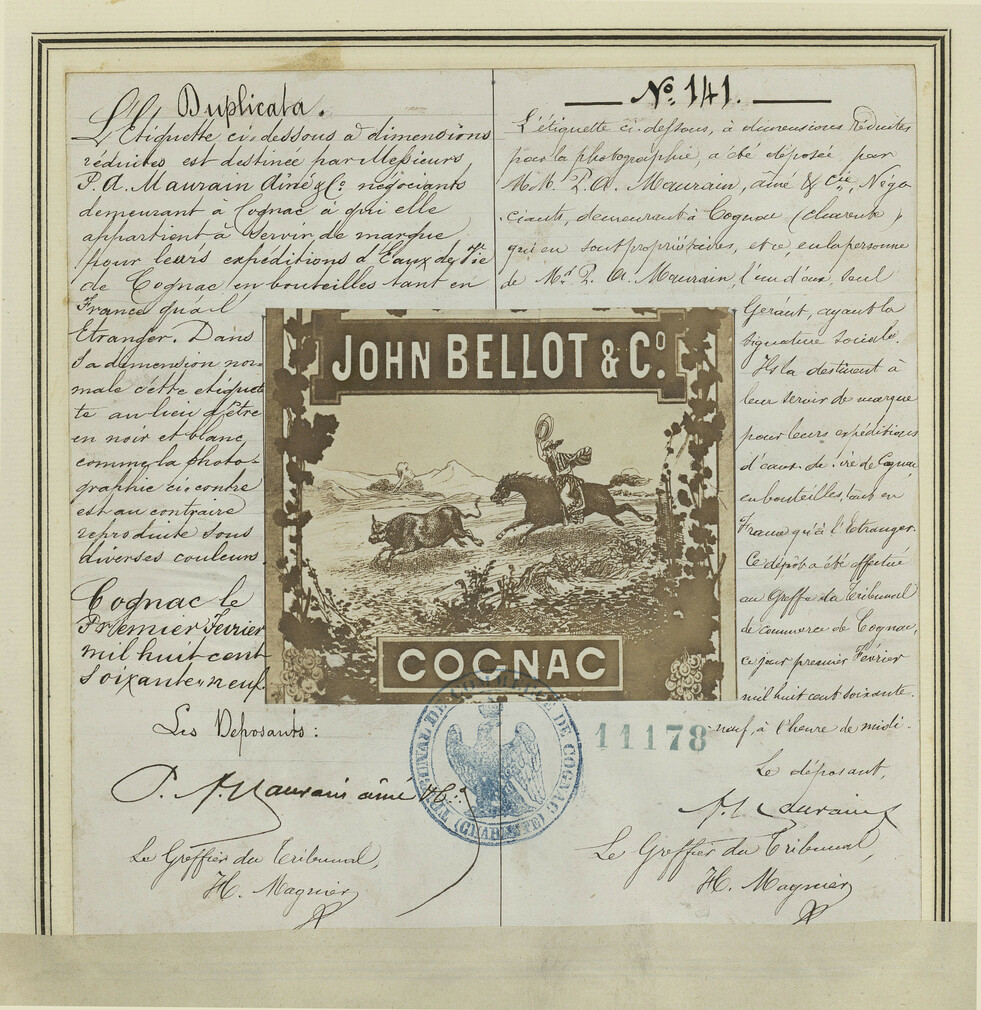 Duplicata.
L'Etiquette ci-dessous à dimensions
réduites est destinée par Messieurs
P. A. Maurain Aîné & Cº négociants
demeurant à Cognac à qui elle
appartient à servir de marque
pour leurs expéditions d'Eaux de Vie
de Cognac en bouteilles tant en
France qu'à l'
Etranger. Dans
sa dimension nor-
male cette etiquet
te au lieu d'être
en noir et blanc
comme la photo-
graphie ci-contre
est au contraire
reproduite sous
diverses couleurs.
Cognac le
Premier Fevrier
mil huit cent
soixante neuf
Les Déposants:
P. A. Maurain aîné & Cº
Le Greffier du Tribunal,
H. Magnier
Nº 141.
L'étiquette ci-dessous, à dimensions réduites
par la photographie, a été déposée par
M.M. P. A. Maurain, aîné & Cie, Négo
ciants, demeurant à Cognac (Charente),
qui en sont propriétaires, et ce, en la personne
de Mr. P. A. Maurain, l'un d'eux, seul
Gérant, ayant la
signature sociale.
Ils la destinent à
leur servir de marque
pour leurs expéditions
d'eaux-de-vie de Cognac,
en bouteilles, tant en
France qu'à l'Etranger.
Ce dépôt a été effectué
au Greffe du Tribunal
de commerce de Cognac,
ce jour premier Février
mil huit cent soixante-
neuf, à l'heure de midi.
Le déposant,
A. Maurain
Le Greffier du Tribunal,
H. Magnier
JOHN BELLOT & Cº.
COGNAC
TRIBUNAL DE COMMERCE DE COGNAC
(CHARENTE)
11178